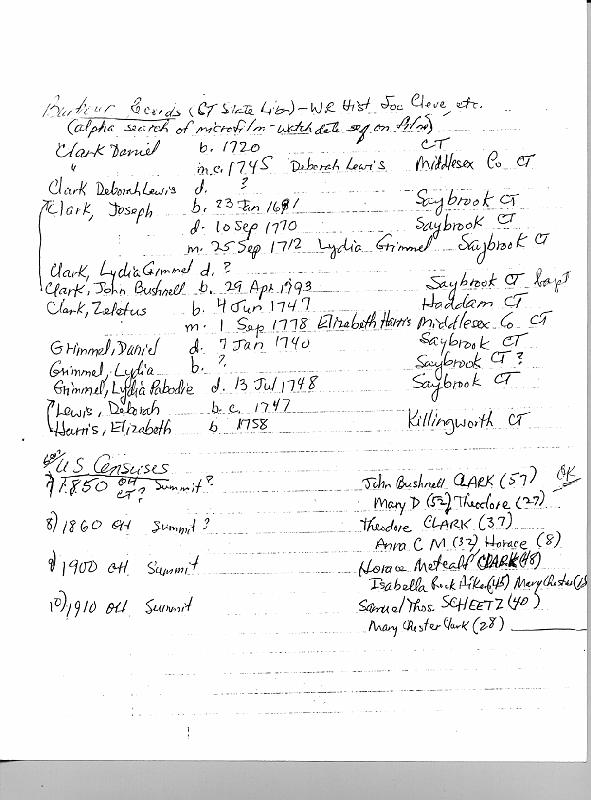 Barbour Records (CT State Lib) - WR Hist Soc Cleve, etc.
(alpha search of microfilm - watch date seq on film)
Clark Daniel b. 1720 CT
" m.c. 1745 Deborah Lewis Middlesex Co CT
Clark Deborah Lewis d. ?
Clark, Joseph b. 23 Jan 1681 Saybrook CT
d. 10 Sep 1770 Saybrook CT
m. 25 Sep 1712 Lydia Grimmel Saybrook CT
Clark, Lydia Grimmel d. ?
Clark, John Bushnell b. 29 Apr 1793 Saybrook CT bapt
Clark, Zelotus b. 4 Jun 1747 Haddam CT
m. 1 Sep 1778 Elizabeth Harris Middlesex Co. CT
Grimmel, Daniel d. 7 Jan 1740 Saybrook CT
Grimmel, Lydia b. ? Saybrook CT ?
Grimmel, Lydia Pabodie d. 13 Jul 1748 Saybrook CT
Lewis, Deborah b. c. 1747
Harris, Elizabeth b 1758 Killingworth CT
US Censuses
7) 1850 OH CT? Summit? John Bushnell CLARK (57) OK
Mary D (52) Theodore (27)
8) 1860 OH Summit? Theodore CLARK (37)
Anna C M (32) Horace (8)
9) 1900 OH Summit Horace Metcalf CLARK (48)
Isabella (45) Mary Chester
10) 1910 OH Summit Samuel Thos. SCHEETZ (40)
Mary Chester Clark (28)